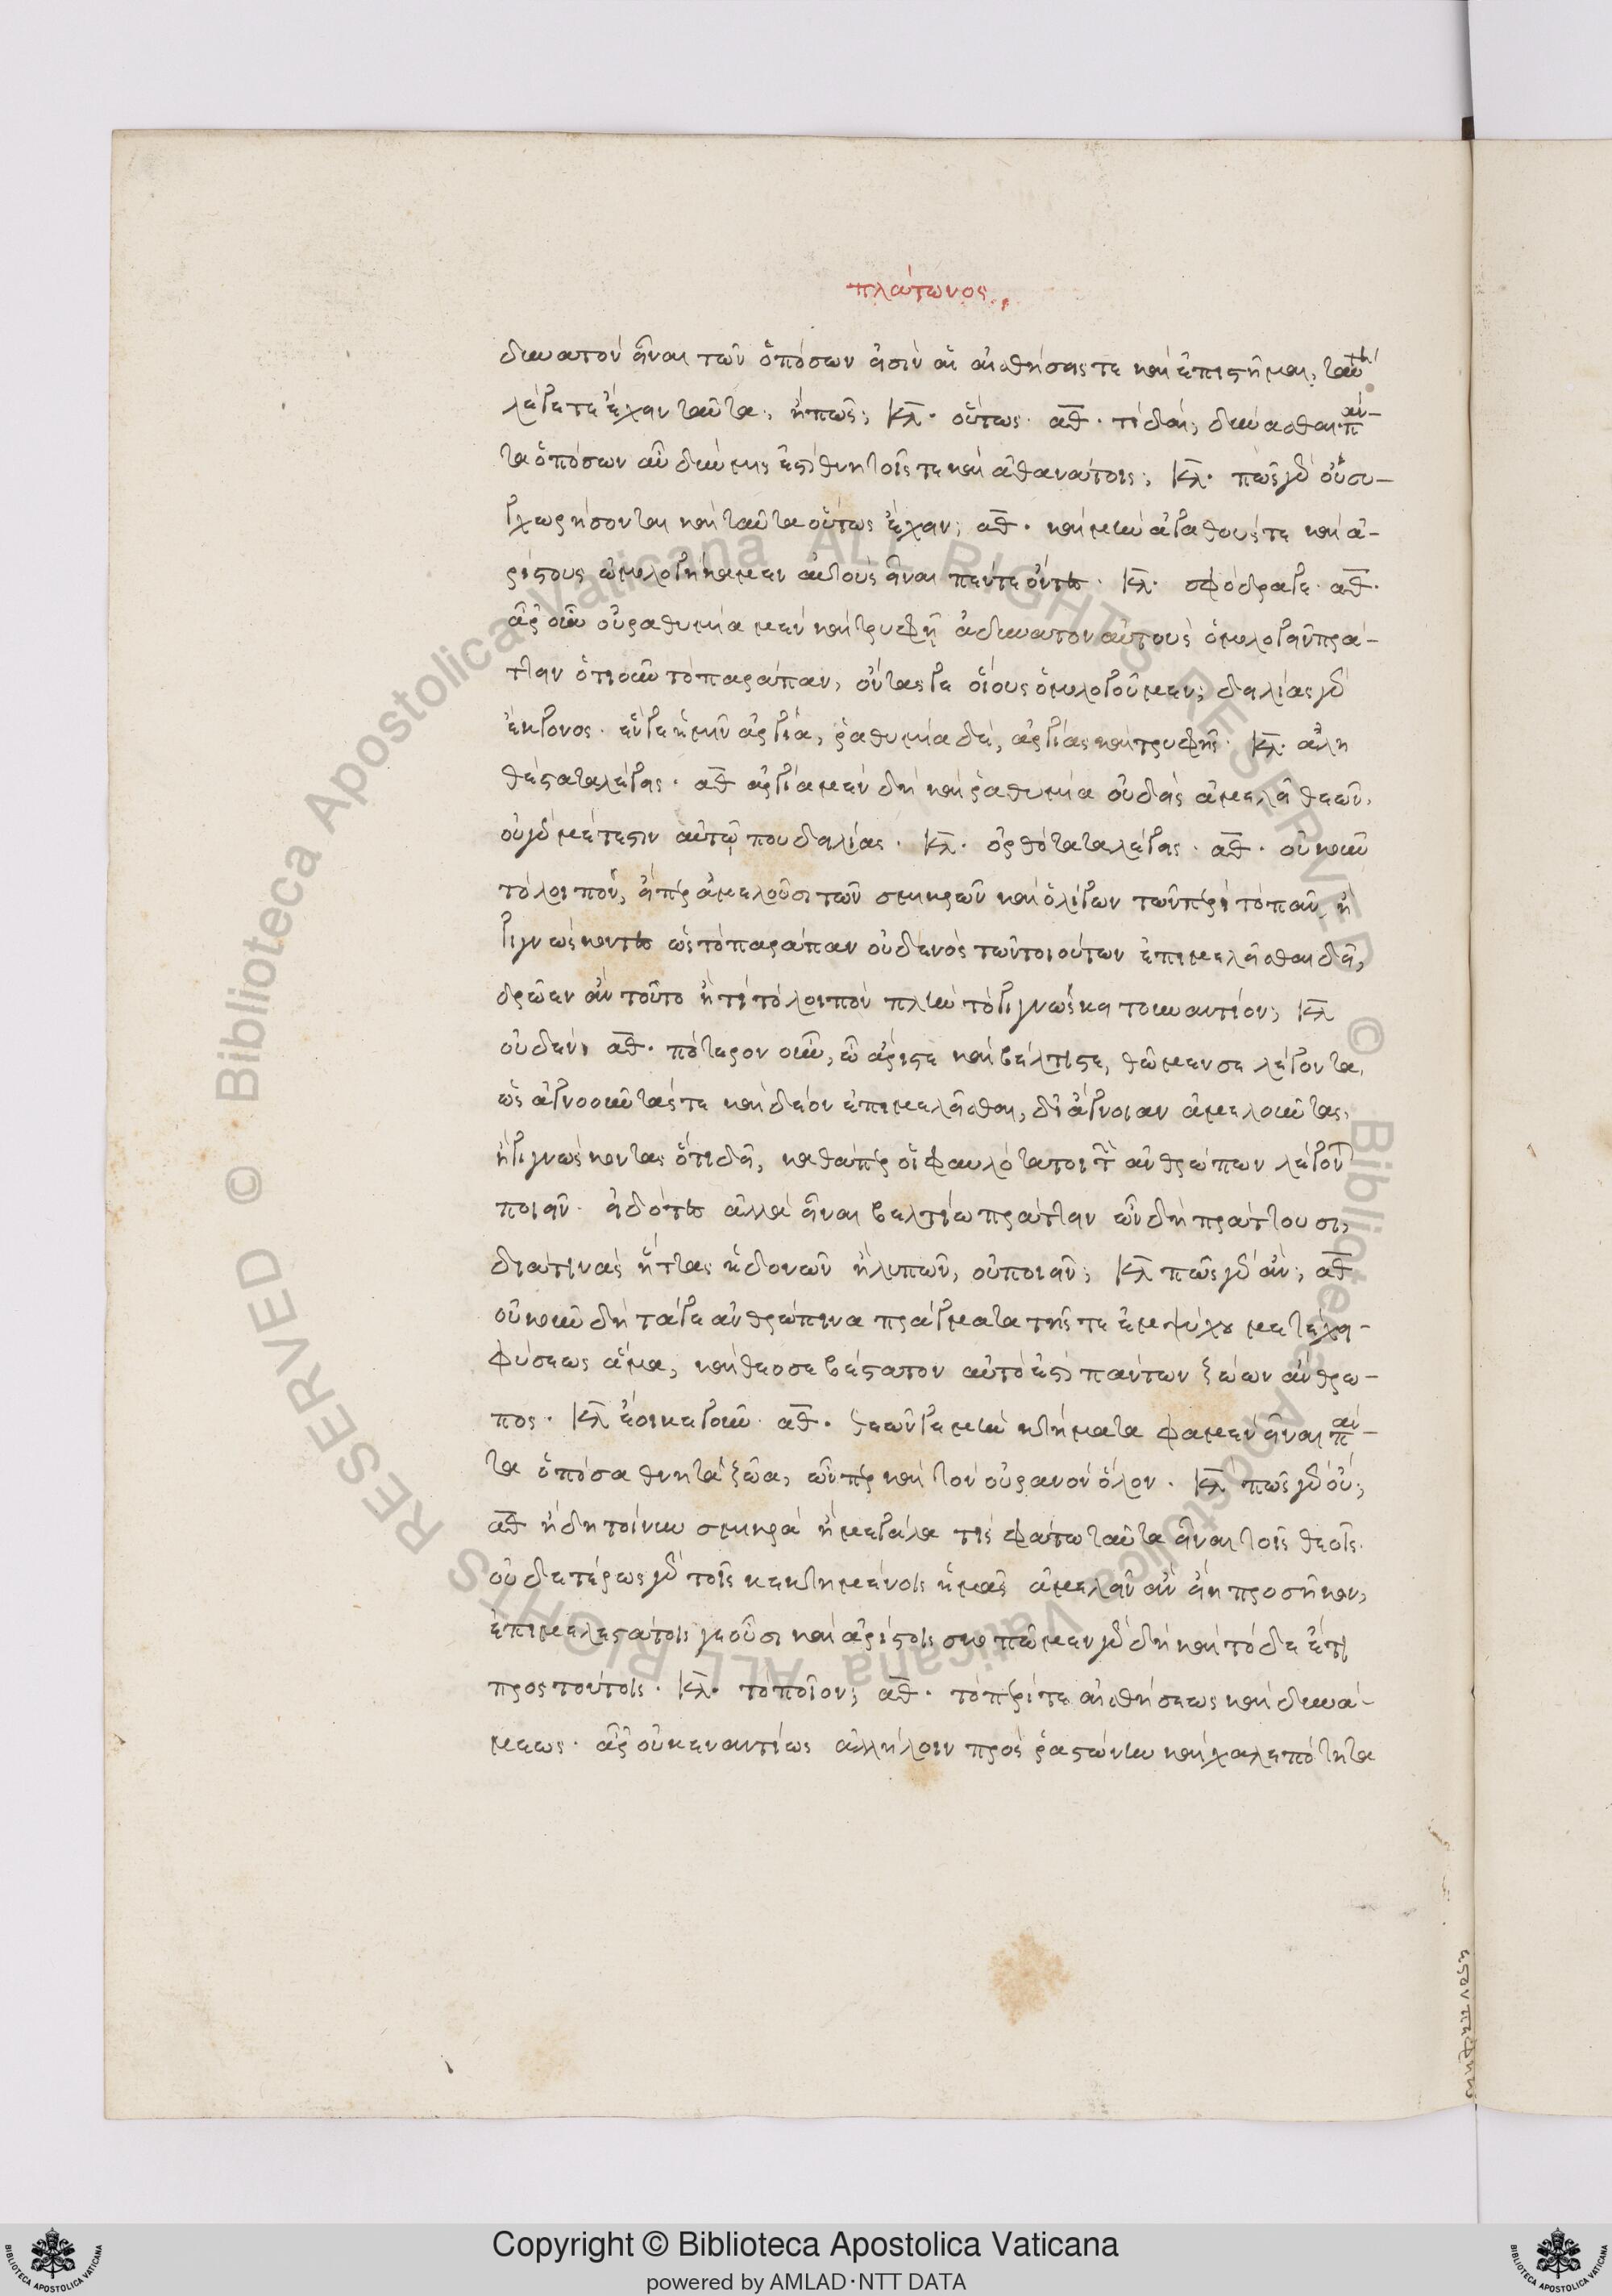 πλάτωνος
δυνατὸν εἶναι τῶν ὁπόσων εἰσὶν αἱ αἰσθήσεις τε καὶ ἐπιστῆμαι, ταύτῃ
λέγετε ἔχειν ταῦτα, ἢ πῶς; κλ. οὕτως. αθ. τί δαί; δύνασθαι πάν-
τα ὁπόσων αὖ δύναμις ἐστὶ θνητοῖς τε καὶ ἀθανάτοις; κλ. πῶς γὰρ οὐ συ-
γχωρήσονται καὶ ταῦτα οὕτως ἔχειν; αθ. καὶ μὴν ἀγαθούς τε καὶ ἀ-
ρίστους ὡμολογήκαμεν αὐτοὺς εἶναι πέντε ὄντες. κλ. σφόδρα γε. αθ.
ἆρ οὖν οὐ ραθυμία μὲν καὶ τρυφῇ ἀδύνατον αὐτοὺς ὁμολογεῖν πρά-
ττειν ὁτιοῦν τὸ παράπαν, ὄντας γε οἵους ὁμολογοῦμεν; δειλίας γὰρ
ἔκγονος ἔν γε ἡμῖν ἀργία, ῥαθυμία δὲ, ἀργίας καὶ τρυφῆς. κλ. ἀλη
θέστατα λέγεις. αθ ἀργία μὲν δὴ καὶ ῥαθυμία οὐδεὶς ἀμελεῖ θεῶν,
οὐ γὰρ μέτεστιν αὐτῷ που δειλίας. κλ. ὀρθότατα λέγεις. αθ. οὐκοῦν
τὸ λοιπὸν, εἴπερ ἀμελοῦσι τῶν σμικρῶν καὶ ὀλίγων τῶν περὶ τὸ πᾶν, ἢ
γιγνώσκοντες ὡς τὸ παράπαν οὐδενὸς τῶν τοιούτων ἐπιμελεῖσθαι δεῖ,
δρῷεν ἂν τοῦτο ἢ τί τὸ λοιπὸν πλὴν τὸ γιγνώσκει τοὐναντίον; κλ
οὐδέν. αθ. πότερον οὖν, ὦ ἄριστε καὶ βέλτιστε, θῶμεν σε λέγοντα,
ὡς ἀγνοοῦντάς τε καὶ δέον ἐπιμελεῖσθαι, δι ἄγνοιαν ἀμελοῦντας,
ἢ γιγνώσκοντας ὅτι δεῖ, καθάπερ οἱ φαυλότατοι τῶν ἀνθρώπων λέγον
ποιεῖν. εἰδότες ἄλλα εἶναι βελτίω πράττειν ὧν δὴ πράττουσι,
διά τινας ἥττας ἡδονῶν ἢ λυπῶν, οὐ ποιεῖν; κλ πῶς γὰρ ἄν; αθ
οὐκοῦν δὴ τά γε ἀνθρώπινα πράγματα τῆς τε ἐμψύχου μετέχει
φύσεως ἅμα, καὶ θεοσεβέστατον αὐτὸ ἐστὶ πάντων ζῴων ἄνθρω-
πος. κλ ἔοικε γοῦν. αθ. θεῶν γε μὴν κτήματα φαμὲν εἶναι πάν-
τα ὁπόσα θνητὰ ζῷα, ὧνπερ καὶ τὸν οὐρανὸν ὅλον. κλ πῶς γὰρ οὔ;
αθ ἤδη τοίνυν σμικρὰ ἢ μεγάλα τις φάτω ταῦτα εἶναι τοῖς θεοῖς.
οὐδετέρως γὰρ τοῖς κεκτημένοις ἡμᾶς ἀμελεῖν ἂν εἴη προσῆκον,
ἐπιμελεστάτοις γε οὖσι καὶ ἀρίστοις σκοπῶμεν γὰρ δὴ καὶ τόδε ἔτι
πρὸς τούτοις. κλ. τὸ ποῖον; αθ. τὸ περί τε αἰσθήσεως καὶ δυνά-
μεως. ἆρ οὐκ ἐναντίως ἀλλήλοιν πρὸς ῥᾳστώνην καὶ χαλεπότητα